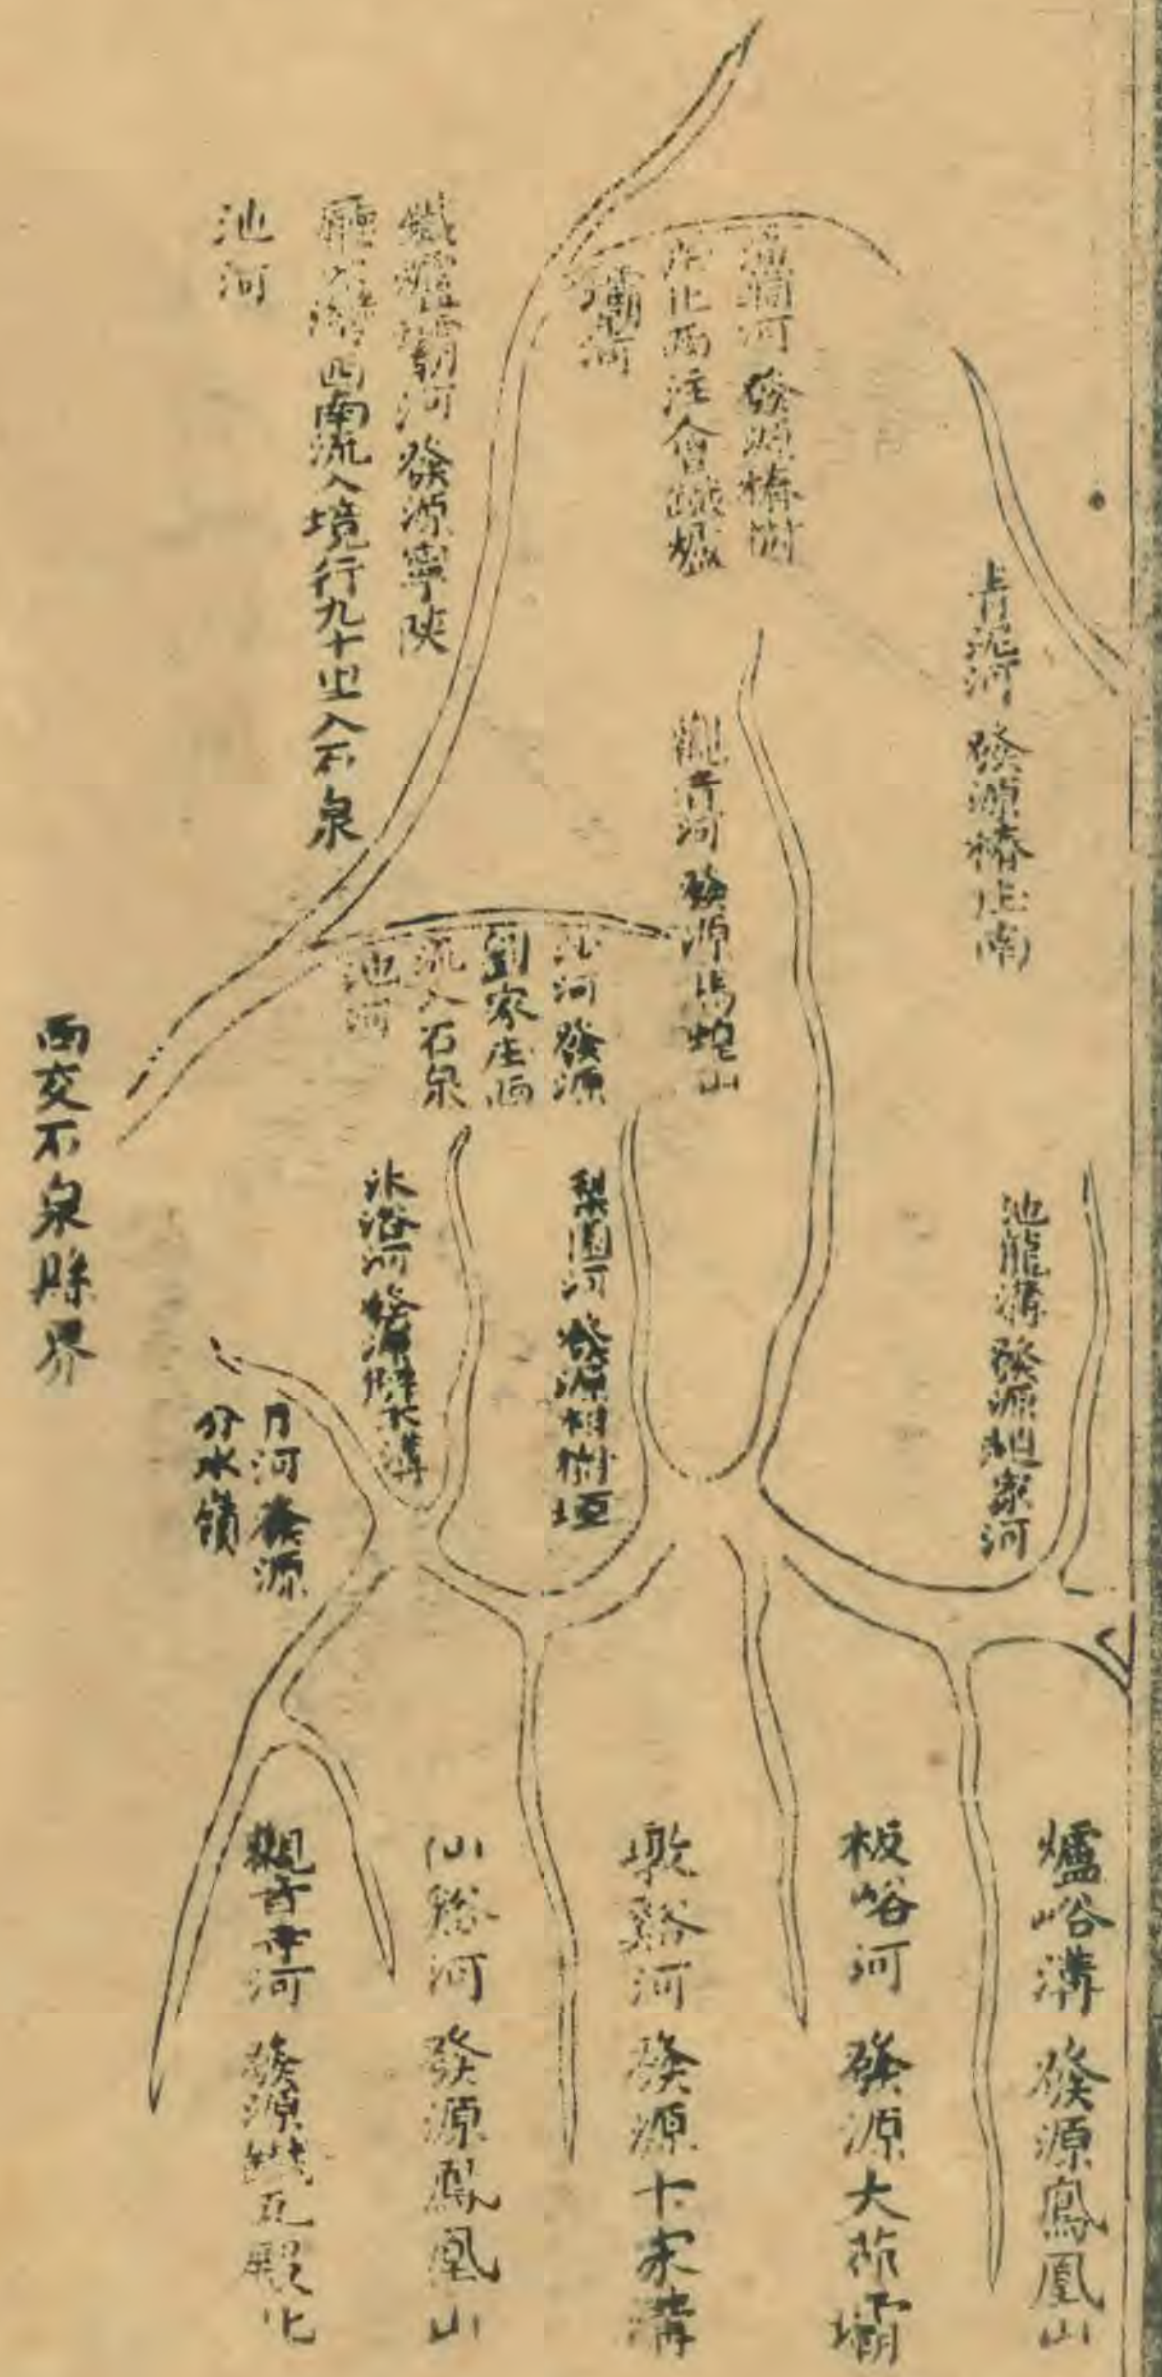 青泥河 發源椿庄南
漁洞河 發源椿樹
庄北西注會鐵爐
壩河
鐵爐壩河 發源寧陝
廳 西南流入境行九十里入石泉
池河
觀音河 發源馬蝗山
沙河發源
劉家庄西
流入石泉
池河
西交石泉縣界
池龍溝發源池家河
梨園河發源柏樹埡
冰浴河發源 木溝
月河發源
分水嶺
爐峪溝 發源鳳凰山
板峪河 發源大茆壩
墩谿河 發源卞家溝
仙谿河 發源鳳凰山
觀音寺河 發源鐵瓦殿北